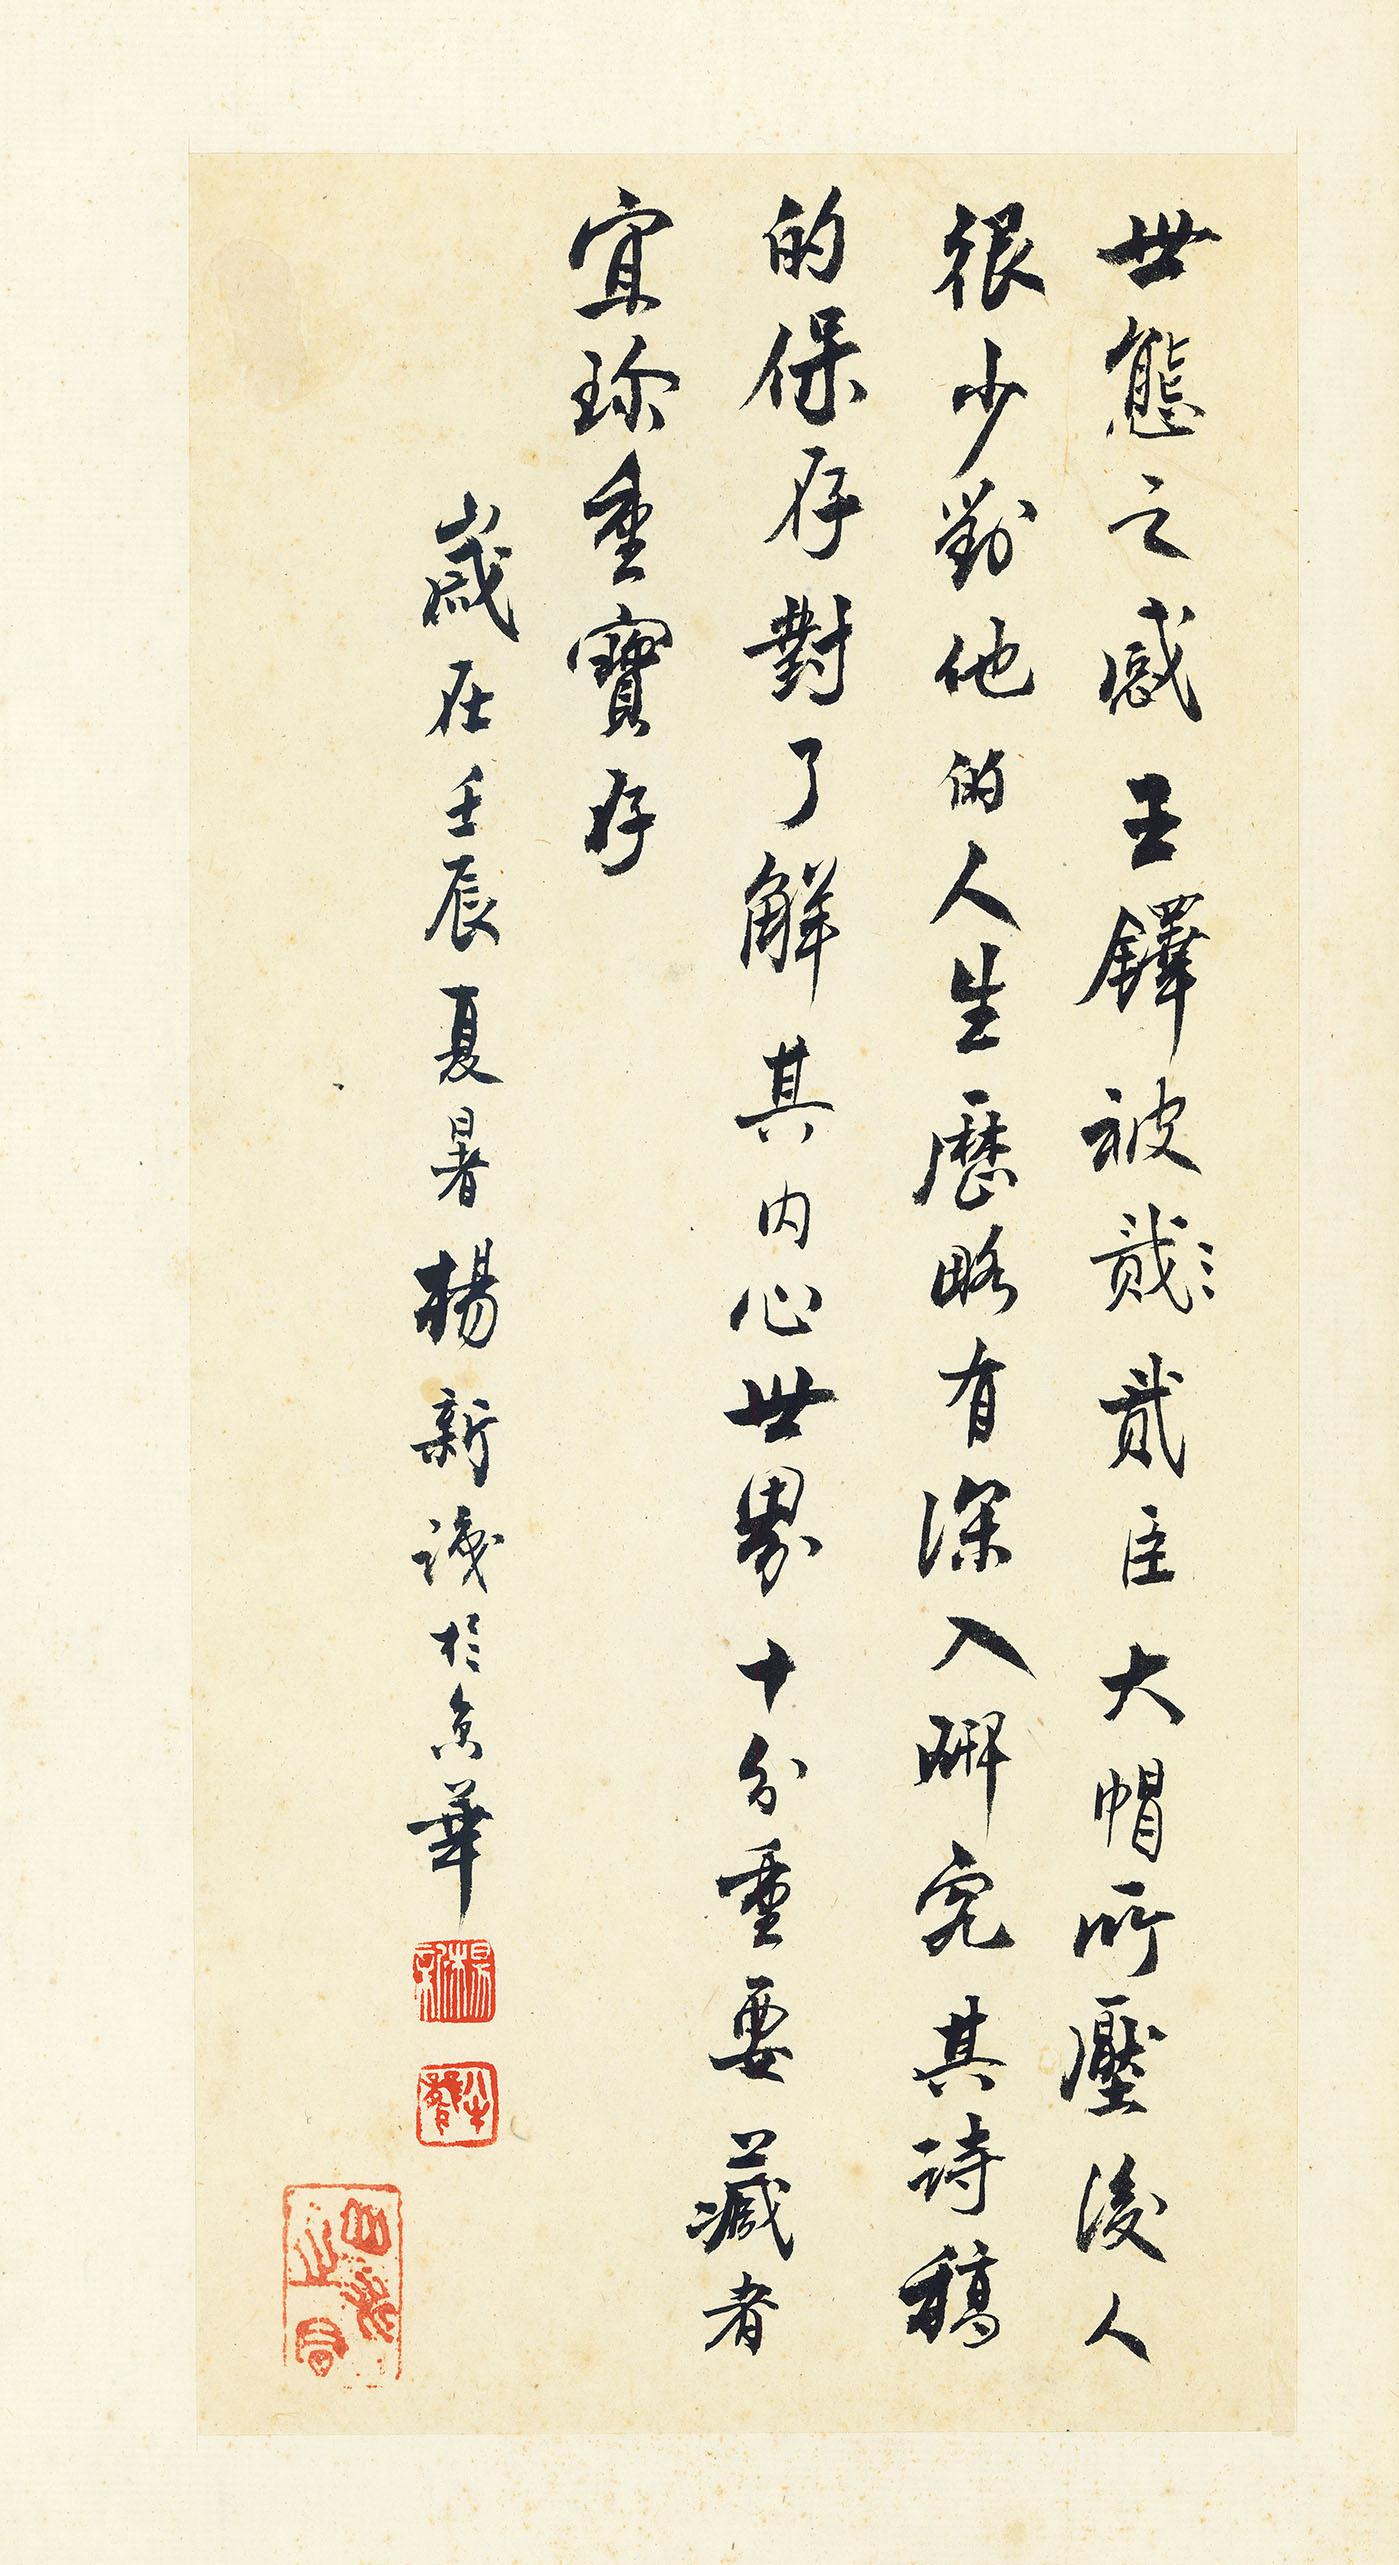 世態之感王鐸被貳貳臣大帽所壓後人
很少對他的人生歷略有深入研究其詩稿
的保存對了解其内心世界十分重要藏者
宜珍重寶存
歲在壬辰夏暑楊新識於京華
楊新